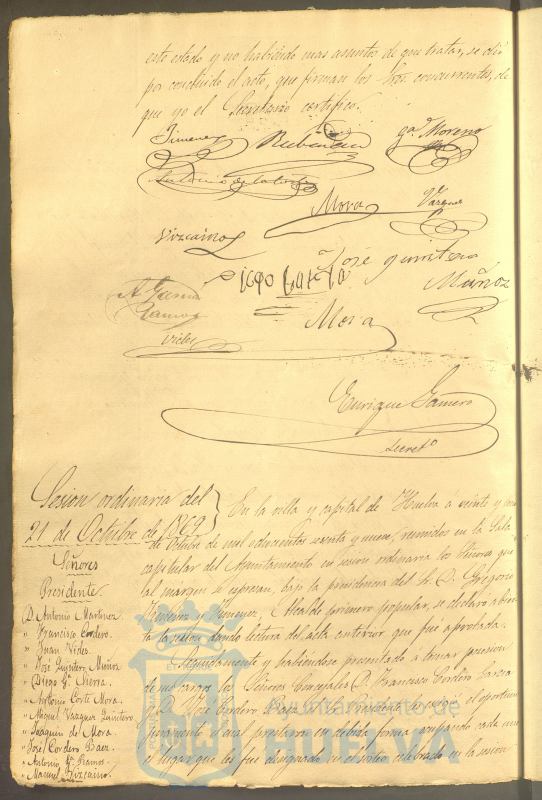 este estado y no habiendo mas asuntos de que tratar, se dió
por concluido el acto, que firman los Sres. concurrentes, de
que yo el Secretario certifico.
Jimenez
gª. Moreno
Mora
Vazquez
Vizcaino
Diego Garcia
José Quintero
Muñoz
A. Garcia
Ramos
Vides
Mora
Enrique Gamero
Secretº
Sesion ordinaria del
21 de Octubre de 1869
Señores
Presidente
D. Antonio Martinez
" Francisco Cordero.
" Juan Vides.
" José Quintero Muñoz
" Diego Gª. Sierra.
" Antonio Corte Mora.
" Miguel Vazquez Quintero.
" Joaquin de Mora.
" José Cordero Baez.
" Antonio Gª. Ramos.
" Manuel Vizcaino.
En la villa y capital de Huelva a veinte y uno
de Octubre de mil ochocientos sesenta y nueve, reunidos en la Sala
capitular del Ayuntamiento en sesion ordinaria los Señores que
al margen se espresan, bajo la presidencia del Sr. D. Gregorio
Jimenez, Alcalde primero popular, se declaró abier-
ta la sesion dando lectura del acta anterior que fué aprobada.
Seguidamente y habiendose presentado á tomar posesion
de sus cargos los Señores Concejales D. Francisco Cordero Garcia
y D. José Cordero Baez el Sr. Presidente el oportuno
juramento el cual prestaron en debida forma ocupando cada uno
el lugar que les fué designado en el sorteo celebrado en la sesion
Ayuntamiento de
HUELVA